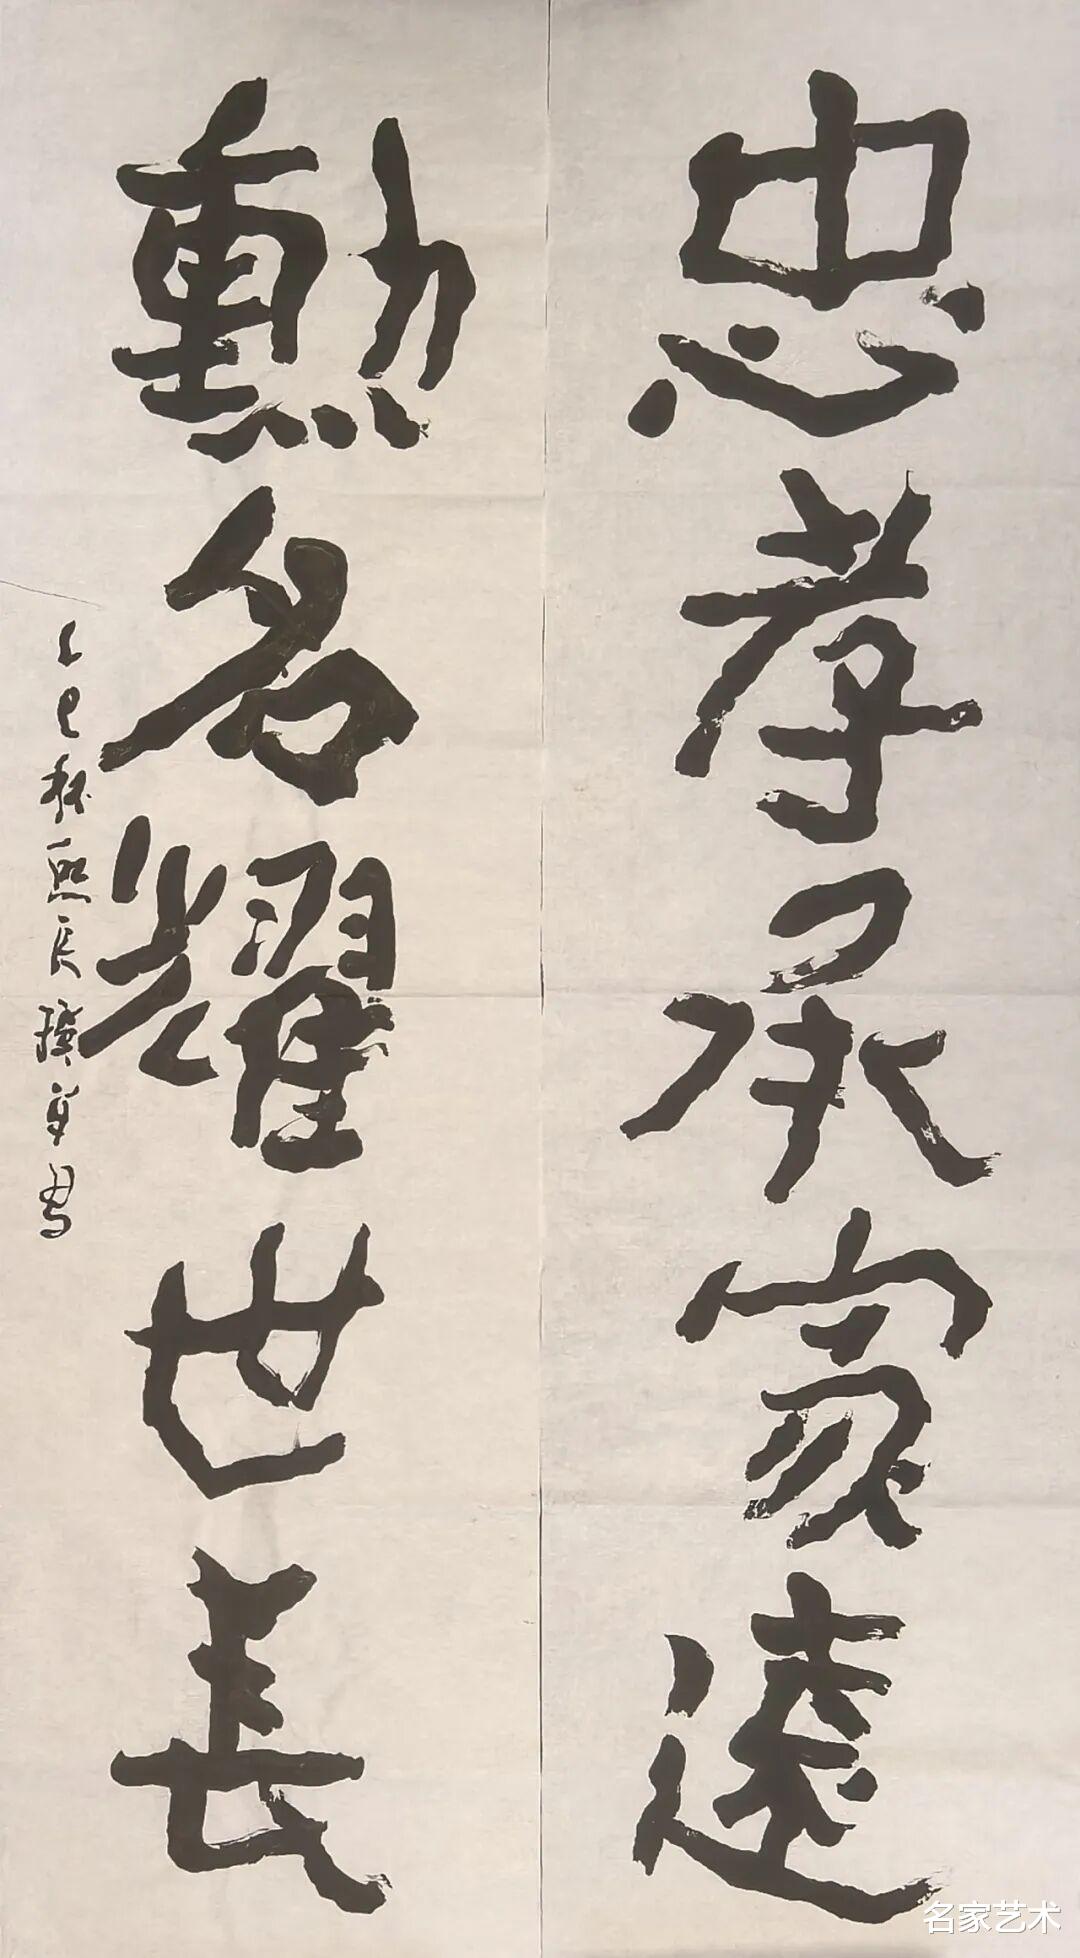 忠孝承家遠
勳名耀世長
乙巳秋熙良撰并書
名家艺术